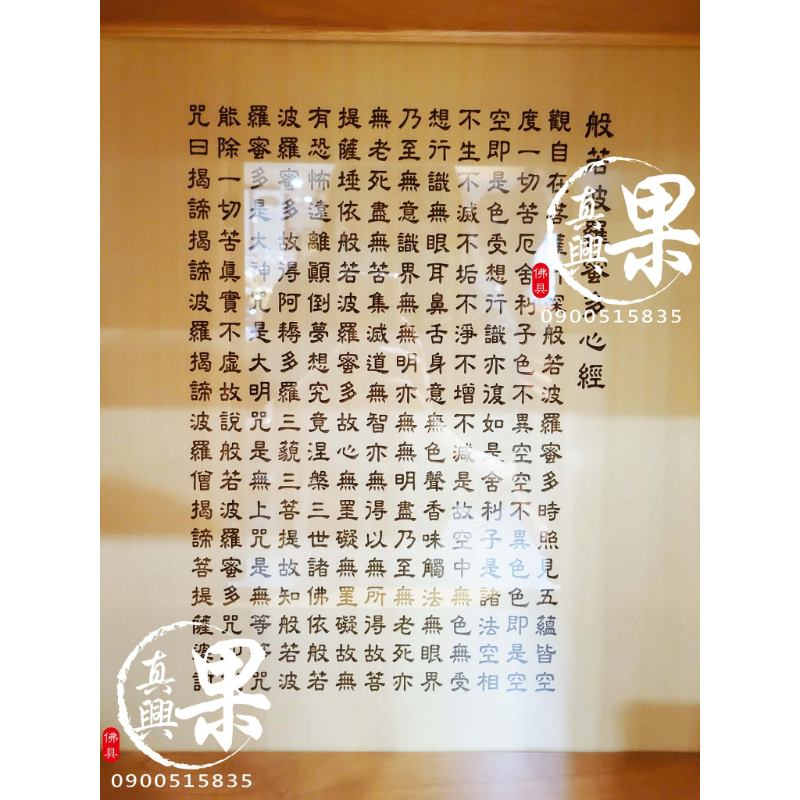 般若波羅蜜多心經
觀自在菩薩深般若波羅蜜多時照見五蘊皆空
度一切苦厄舍利子色不異空空不異色色即是空
空即是色受想行識亦復如是舍利子是諸法空相
不生不滅不垢不淨不增不減是故空中無色無受
想行識無眼耳鼻舌身意無色聲香味觸法無眼界
乃至無意識界無無明亦無無明盡乃至無老死亦
無老死盡無苦集滅道無智亦無得以無所得故菩
提薩埵依般若波羅蜜多故心無罣礙無罣礙故無
有恐怖遠離顛倒夢想究竟涅槃三世諸佛依般若
波羅蜜多故得阿耨多羅三藐三菩提故知般若波
羅蜜多是大神咒是大明咒是無上咒是無等等咒
能除一切苦眞實不虛故說般若波羅蜜多咒
咒曰揭諦揭諦波羅揭諦波羅僧揭諦菩提薩婆訶
真興果
佛具
0900515835
真興果
佛具
0900515835